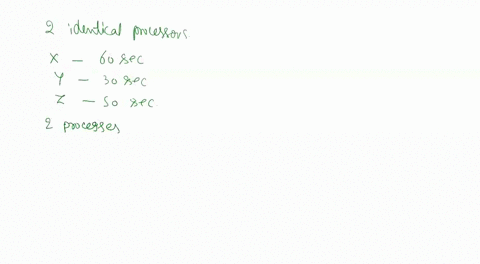 2 identical processors
X — 60 sec
Y — 30 sec
Z — 50 sec
2 processes